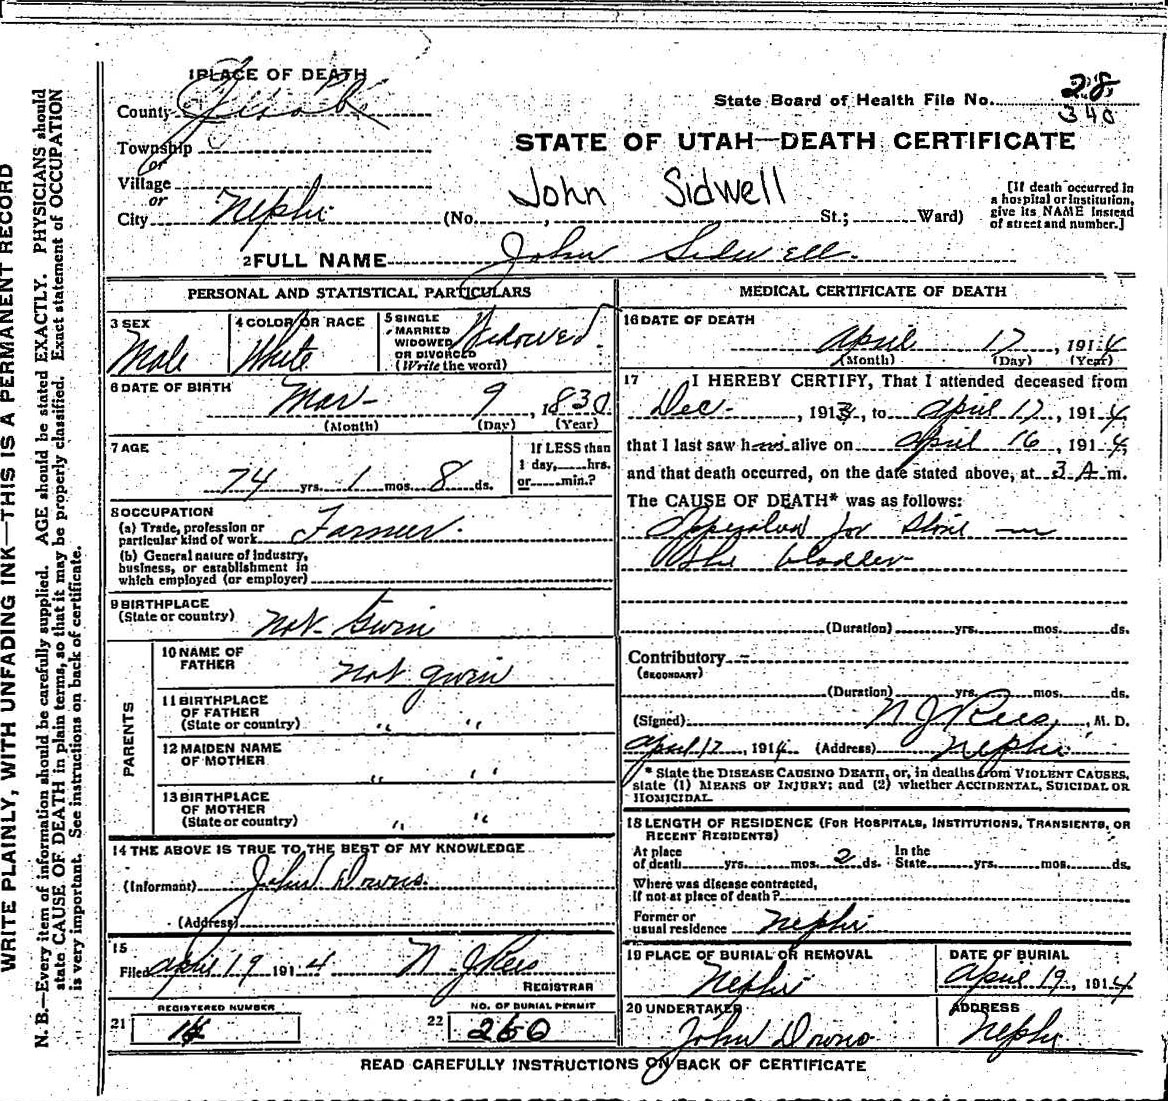 1 PLACE OF DEATH
County
Township
or
Village
or
City Nephi
State Board of Health File No. 28
340
STATE OF UTAH—DEATH CERTIFICATE
John Sidwell
(No. , St.; Ward)
[If death occurred in
a hospital or institution,
give its NAME instead
of street and number.]
2 FULL NAME John Sidwell
PERSONAL AND STATISTICAL PARTICULARS
3 SEX
Male
4 COLOR OR RACE
White
5 SINGLE
MARRIED
WIDOWED
OR DIVORCED
(Write the word)
Widowed
6 DATE OF BIRTH
Mar 9, 1830
(Month) (Day) (Year)
7 AGE
74 yrs. 1 mos. 8 ds.
If LESS than
1 day, hrs.
or min.?
8 OCCUPATION
(a) Trade, profession or
particular kind of work Farmer
(b) General nature of industry,
business, or establishment in
which employed (or employer)
9 BIRTHPLACE
(State or country) Not Givin
PARENTS
10 NAME OF
FATHER Not givin
11 BIRTHPLACE
OF FATHER
(State or country) " "
12 MAIDEN NAME
OF MOTHER " "
13 BIRTHPLACE
OF MOTHER
(State or country) " "
14 THE ABOVE IS TRUE TO THE BEST OF MY KNOWLEDGE
(Informant) John Downs
(Address)
15
Filed April 19 1914 N. J Rees
REGISTRAR
REGISTERED NUMBER
21
NO. OF BURIAL PERMIT
22 260
MEDICAL CERTIFICATE OF DEATH
16 DATE OF DEATH
April 17, 1914
(Month) (Day) (Year)
17 I HEREBY CERTIFY, That I attended deceased from
Dec , 1913, to April 17, 1914,
that I last saw him alive on April 16, 1914,
and that death occurred, on the date stated above, at 3 A m.
The CAUSE OF DEATH* was as follows:
Operated for Stone in
the bladder
(Duration) yrs. mos. ds.
Contributory
(SECONDARY)
(Duration) yrs. mos. ds.
(Signed) N J Rees, M. D.
April 17, 1914 (Address) Nephi
* State the DISEASE CAUSING DEATH, or, in deaths from VIOLENT CAUSES,
state (1) MEANS OF INJURY; and (2) whether ACCIDENTAL, SUICIDAL OR
HOMICIDAL.
18 LENGTH OF RESIDENCE (FOR HOSPITALS, INSTITUTIONS, TRANSIENTS, OR
RECENT RESIDENTS)
At place
of death yrs. mos. 2 ds. In the
State yrs. mos. ds.
Where was disease contracted,
if not at place of death?
Former or
usual residence Nephi
19 PLACE OF BURIAL OR REMOVAL
Nephi
DATE OF BURIAL
April 19, 1914
20 UNDERTAKER
John Downs
ADDRESS
Nephi
READ CAREFULLY INSTRUCTIONS ON BACK OF CERTIFICATE
WRITE PLAINLY, WITH UNFADING INK—THIS IS A PERMANENT RECORD
N. B.—Every item of information should be carefully supplied. AGE should be stated EXACTLY. PHYSICIANS should
state CAUSE OF DEATH in plain terms, so that it may be properly classified. Exact statement of OCCUPATION
is very important. See instructions on back of certificate.